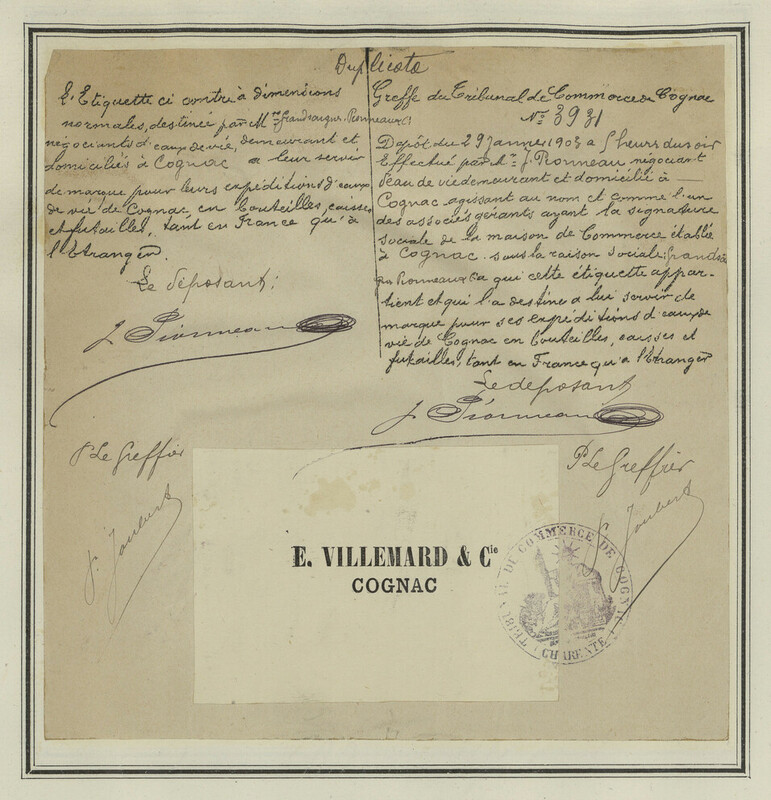 Duplicata
L'Etiquette ci contre à dimensions
normales, destinée par M.rs Grandsaigne, Pionneau & C.
négociants d'eaux de vie, demeurant et
domiciliés à Cognac a leur servir
de marque pour leurs expéditions d'eaux
de vie de Cognac, en bouteilles, caisses
et futailles, tant en France qu'à
l'Etranger.
Le déposant:
J. Pionneau
Greffe du Tribunal de Commerce de Cognac
N° 3931
Dépôt du 29 Janvier 1903 à 5 heurs du soir
Effectué par Mr. J. Pionneau négociant
d'eau de vie demeurant et domicilié à —
Cognac agissant au nom et comme l'un
des associés gérants ayant la signature
sociale de la maison de Commerce établie
à Cognac sous la raison sociale: Grandsai
gne Pionneau & Ca qui cette étiquette appar-
tient et qui l'a destine a lui servir de
marque pour ses expéditions d'eaux de
vie de Cognac en bouteilles, caisses et
futailles, tant en France qu'a l'Etranger
Le déposant
J. Pionneau
Pr Le Greffier
J. Joubert
Pr Le Greffier
J. Joubert
E. VILLEMARD & Cie
COGNAC
TRIBUNAL DE COMMERCE DE COGNAC
CHARENTE